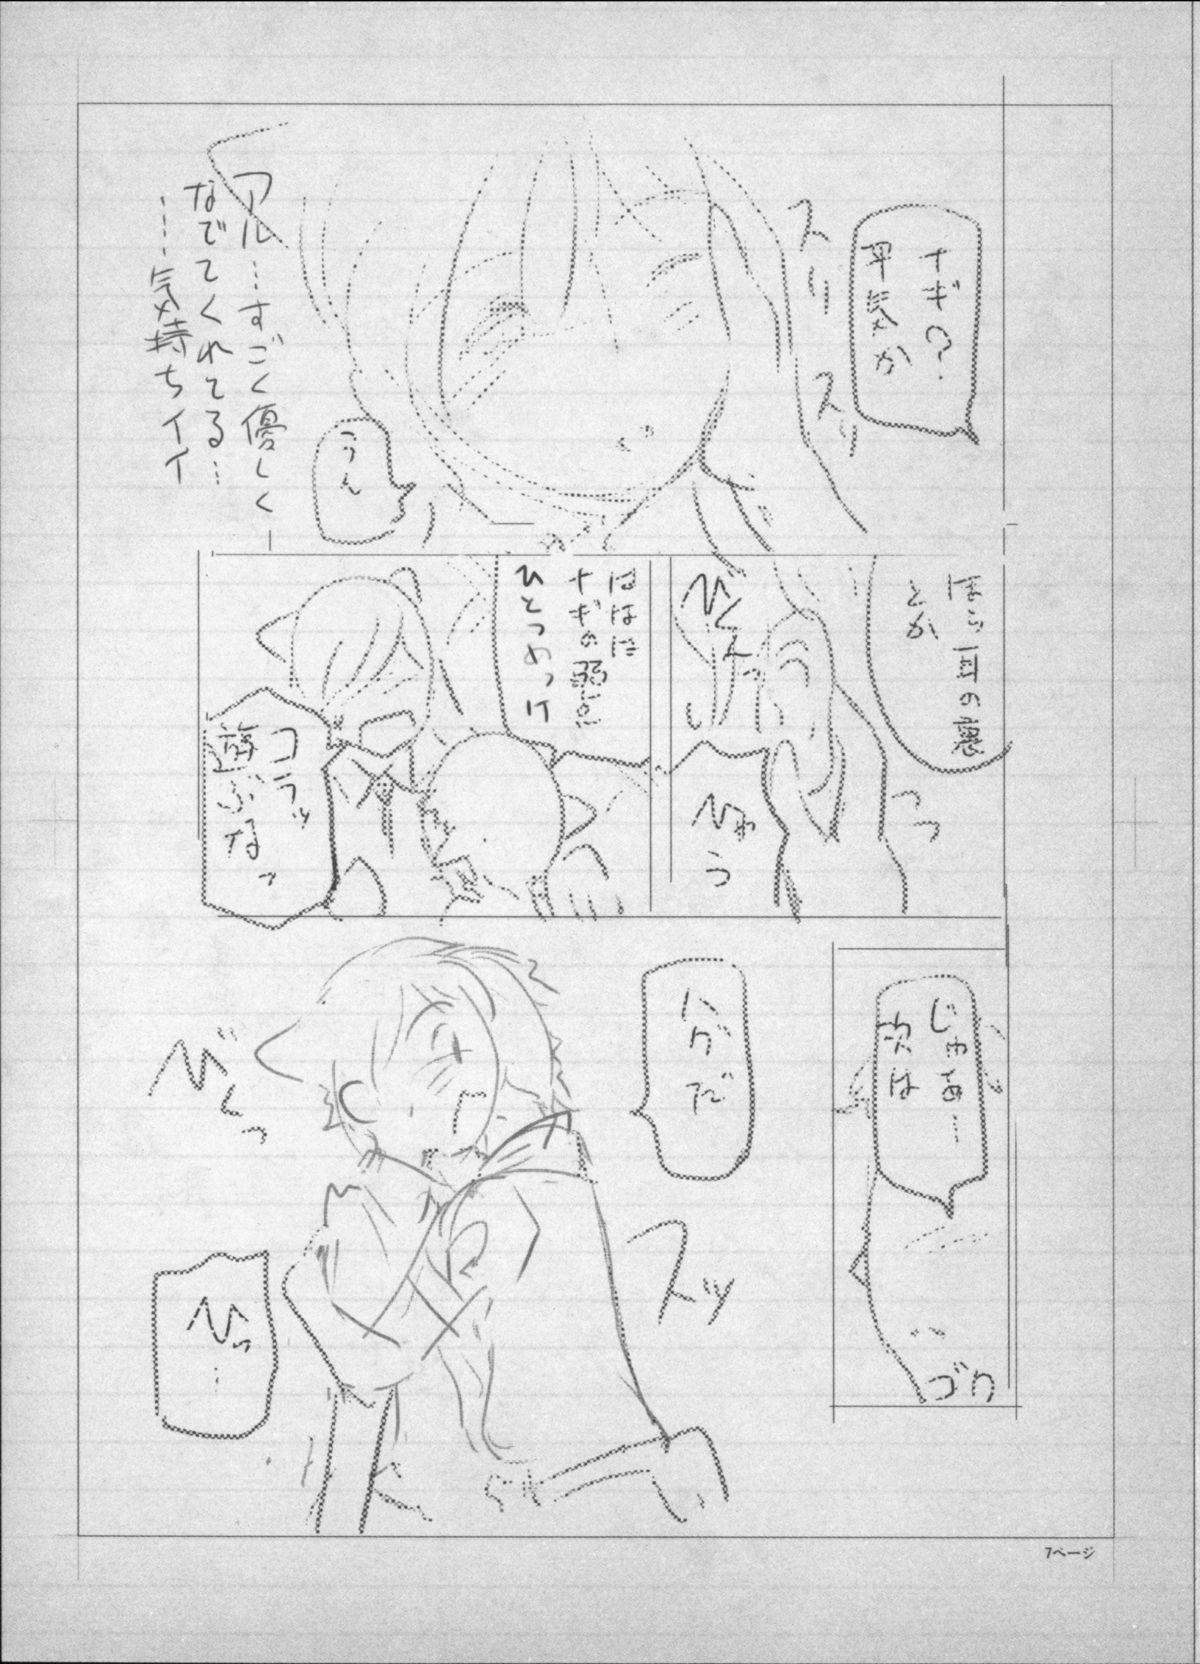 ナギ？
平気か
スリ
スリ
うん
アル…すごく優しく
なでてくれてる…
……気持ちイイ
ほら耳の裏
とか
びくんっ
ひゃう
っっ
ははは
ナギの弱点
ひとつめっけ
コラッ
遊ぶなッ
じゃあ…
次は
ゴク
ハグだ
スッ
びくっ
ひっ…
7ページ